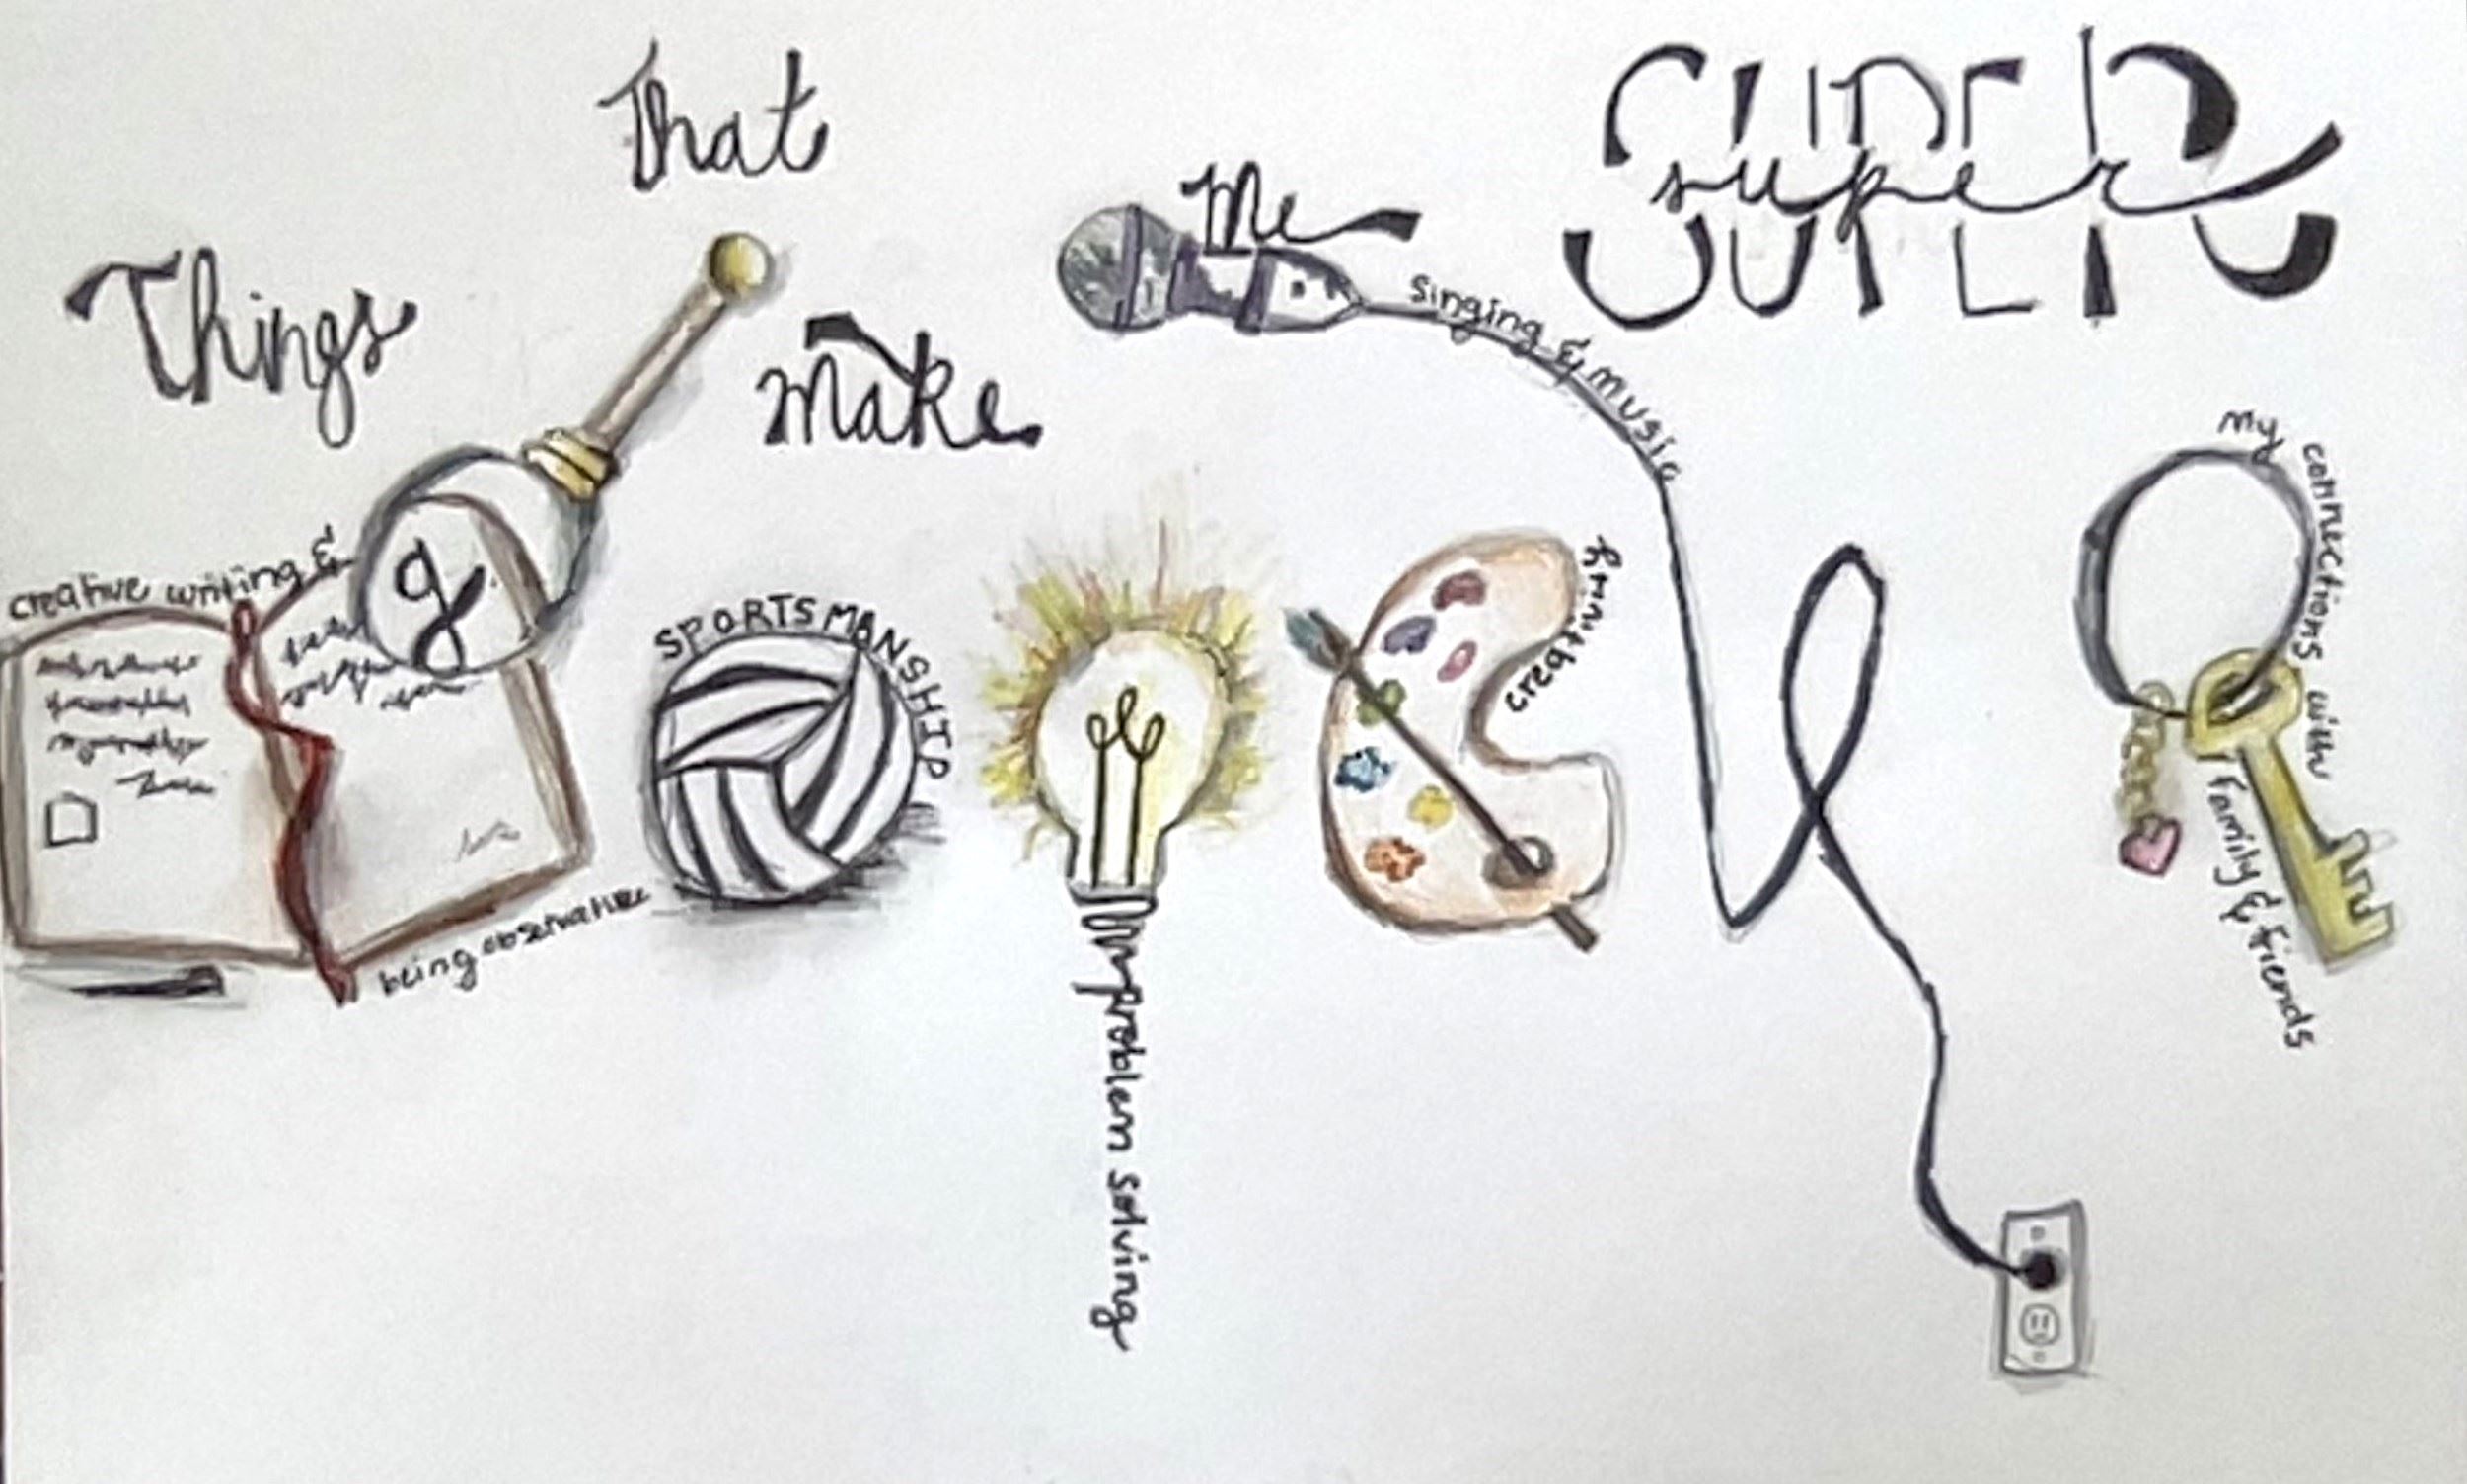 Things
That
Make
Me
SUPER
super
creative writing &
g
being observative
SPORTSMANSHIP
problem solving
creativity
singing & music
my connections with
family & friends